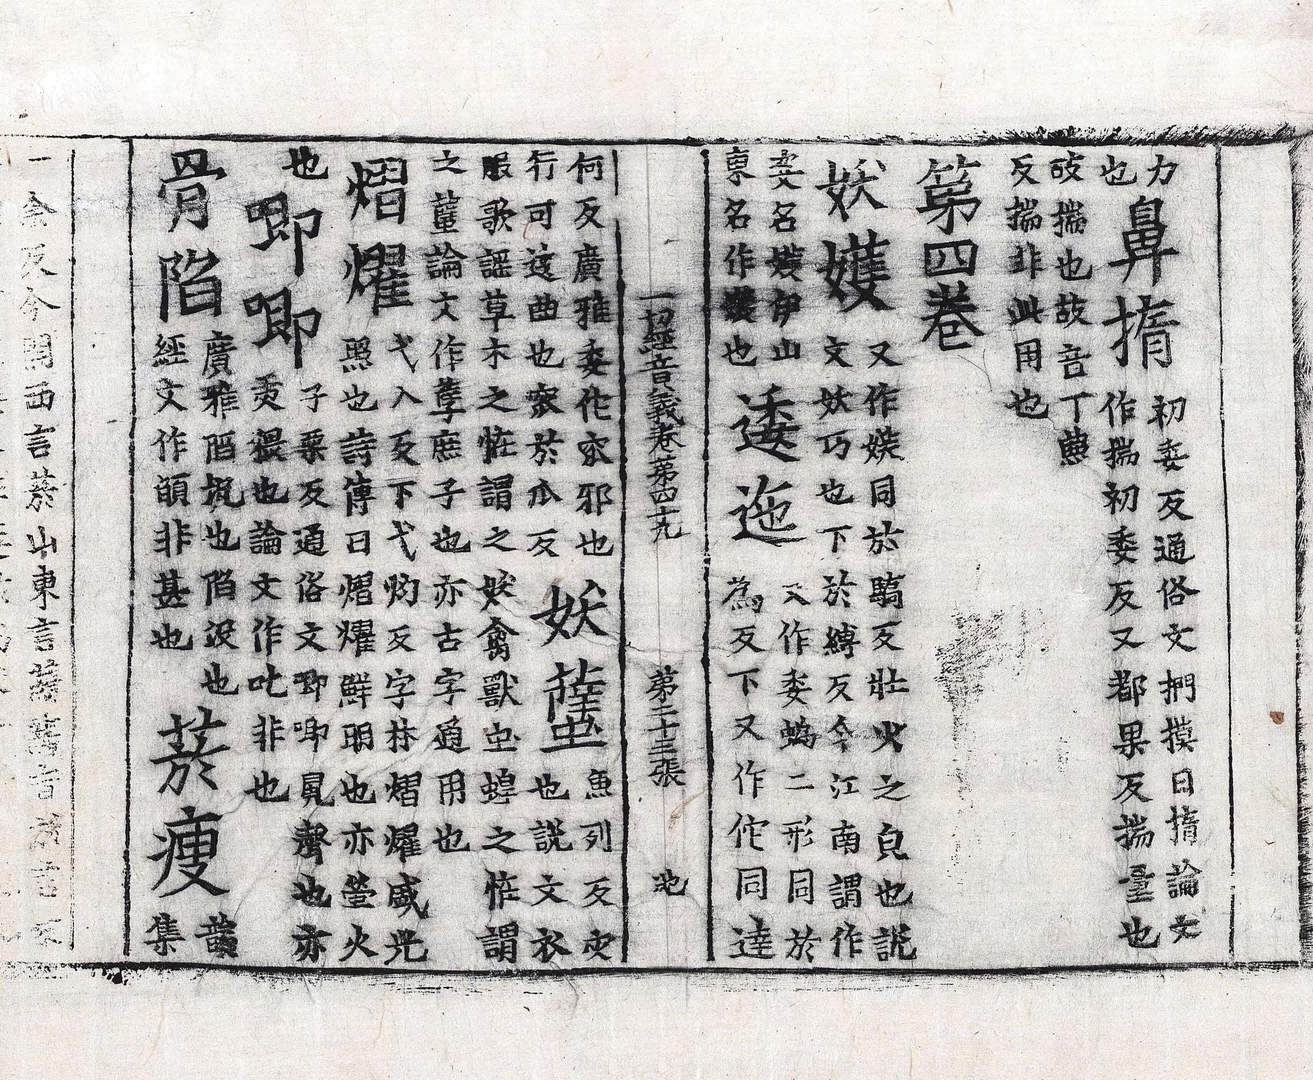 力
也
鼻揣
初委反通俗文捫摸曰揣論文
作揣初委反又都果反揣量也
敁揣也故音丁兼
反揣非此用也
第四卷
妖嬳
又作媖同於驕反壯火之皃也説
文妖巧也下於縛反今江南謂作
姿名嬳伊山
東名作嬳也
逶迤
又作委蜲二形同於
為反下又作佗同達
一切經音義卷第四十九
第二十三張
池
何反廣雅委佗衺邪也
行可迻曲也衺於爪反
妖𧔎
魚列反史
也説文衣
服歌謡草木之恠謂之妖禽獸虫蝗之恠謂
之𧔎論文作孽庶子也亦古字通用也
熠燿
弋入反下弋灼反字林熠燿盛光
照也詩傳曰熠燿鮮明也亦螢火
也
唧唧
子栗反通俗文唧唧鼠聲也亦
煩猥也論文作吡非也
骨陷
廣雅陷坑也陷没也
經文作䫡非甚也
菸瘦
韻
集
一余反今關西言菸山東言蔫蔫音於言反